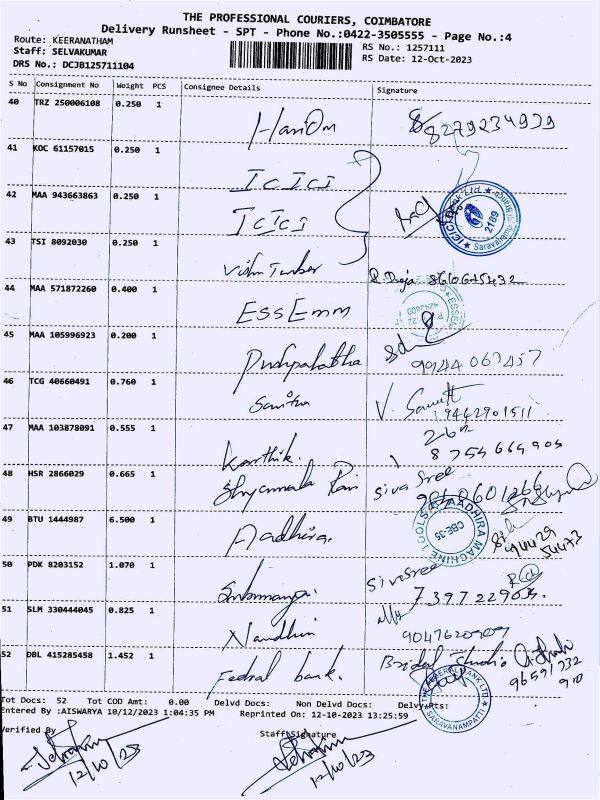 THE PROFESSIONAL COURIERS, COIMBATORE
Delivery Runsheet - SPT - Phone No.:0422-3505555 - Page No.:4
Route: KEERANATHAM
RS No.: 1257111
Staff: SELVAKUMAR
RS Date: 12-Oct-2023
DRS No.: DCJB125711104
S No Consignment No Weight PCS Consignee Details Signature
40 TRZ 250006108 0.250 1
HariOm 8279234939
41 KOC 61157015 0.250 1
ICICI
42 MAA 943663863 0.250 1
ICICI
ICICI Bank Ltd. 2189
43 TSI 8092030 0.250 1
44 MAA 571872260 0.400 1
EssEmm
45 MAA 105996923 0.200 1
Pushpalatha
9944067457
46 TCG 40660491 0.760 1
V.
19462901511
47 MAA 103878091 0.555 1
Karthik. 8754664909
48 HSR 2866029 0.665 1
Shyamala Siva Sree
49 BTU 1444987 6.500 1
Aadhira.
AADHIRA MACHINE TOOLS CBE-35
50 PDK 8203152 1.070 1
Siva Sree
51 SLM 330444045 0.825 1
Nandhini 9047620909
52 DBL 415285458 1.452 1
Fedral bank. Bridal Studio
THE FEDERAL BANK LTD. SARAVANAMPATTI
Tot Docs: 52 Tot COD Amt: 0.00 Delvd Docs: Non Delvd Docs: Delvy Pts:
Entered By :AISWARYA 10/12/2023 1:04:35 PM Reprinted On: 12-10-2023 13:25:59
Verified By Staff Signature
12/10/23 12/10/23